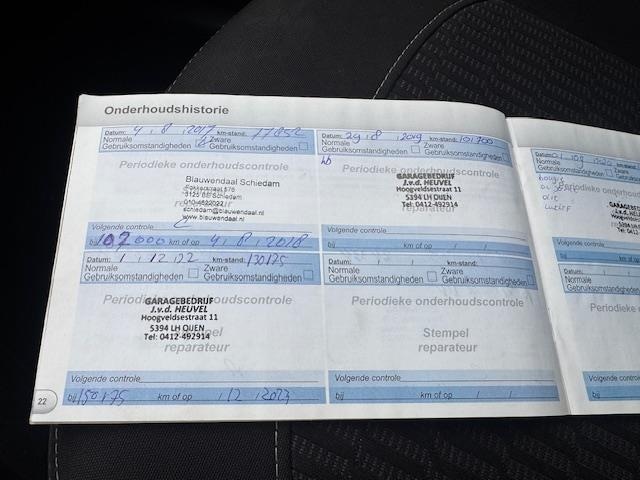 Onderhoudshistorie
Datum: 4 , 8 , 2017 km-stand: 77852
Normale Zware
Gebruiksomstandigheden Gebruiksomstandigheden
Periodieke onderhoudscontrole
Blauwendaal Schiedam
schiedam@blauwendaal.nl
www.blauwendaal.nl
Volgende controle
bij 102000 km of op 4 , 8 , 2018
Datum: 29 , 8 , 2019 km-stand: 101700
Normale Zware
Gebruiksomstandigheden Gebruiksomstandigheden
Periodieke onderhoudscontrole
GARAGEBEDRIJF
J.v.d. HEUVEL
Hoogveldsestraat 11
5394 LH OIJEN
Tel: 0412-492914
reparateur
Volgende controle
bij km of op / /
Datum: 1 , 12 , 22 km-stand: 130175
Normale Zware
Gebruiksomstandigheden Gebruiksomstandigheden
Periodieke onderhoudscontrole
GARAGEBEDRIJF
J.v.d. HEUVEL
Hoogveldsestraat 11
5394 LH OIJEN
Tel: 0412-492914
Stempel
reparateur
Volgende controle
bij 150175 km of op / 12 / 2023
Datum: / / km-stand:
Normale Zware
Gebruiksomstandigheden Gebruiksomstandigheden
Periodieke onderhoudscontrole
Stempel
reparateur
Volgende controle
bij km of op / /
22
Datum:
Normale
Gebruiksomstandigheden
Periodieke onderhou
olie
Volgende controle
bij km
Datum: /
Normale
Gebruiksomstandighe
Periodieke
Volgende controle
bij